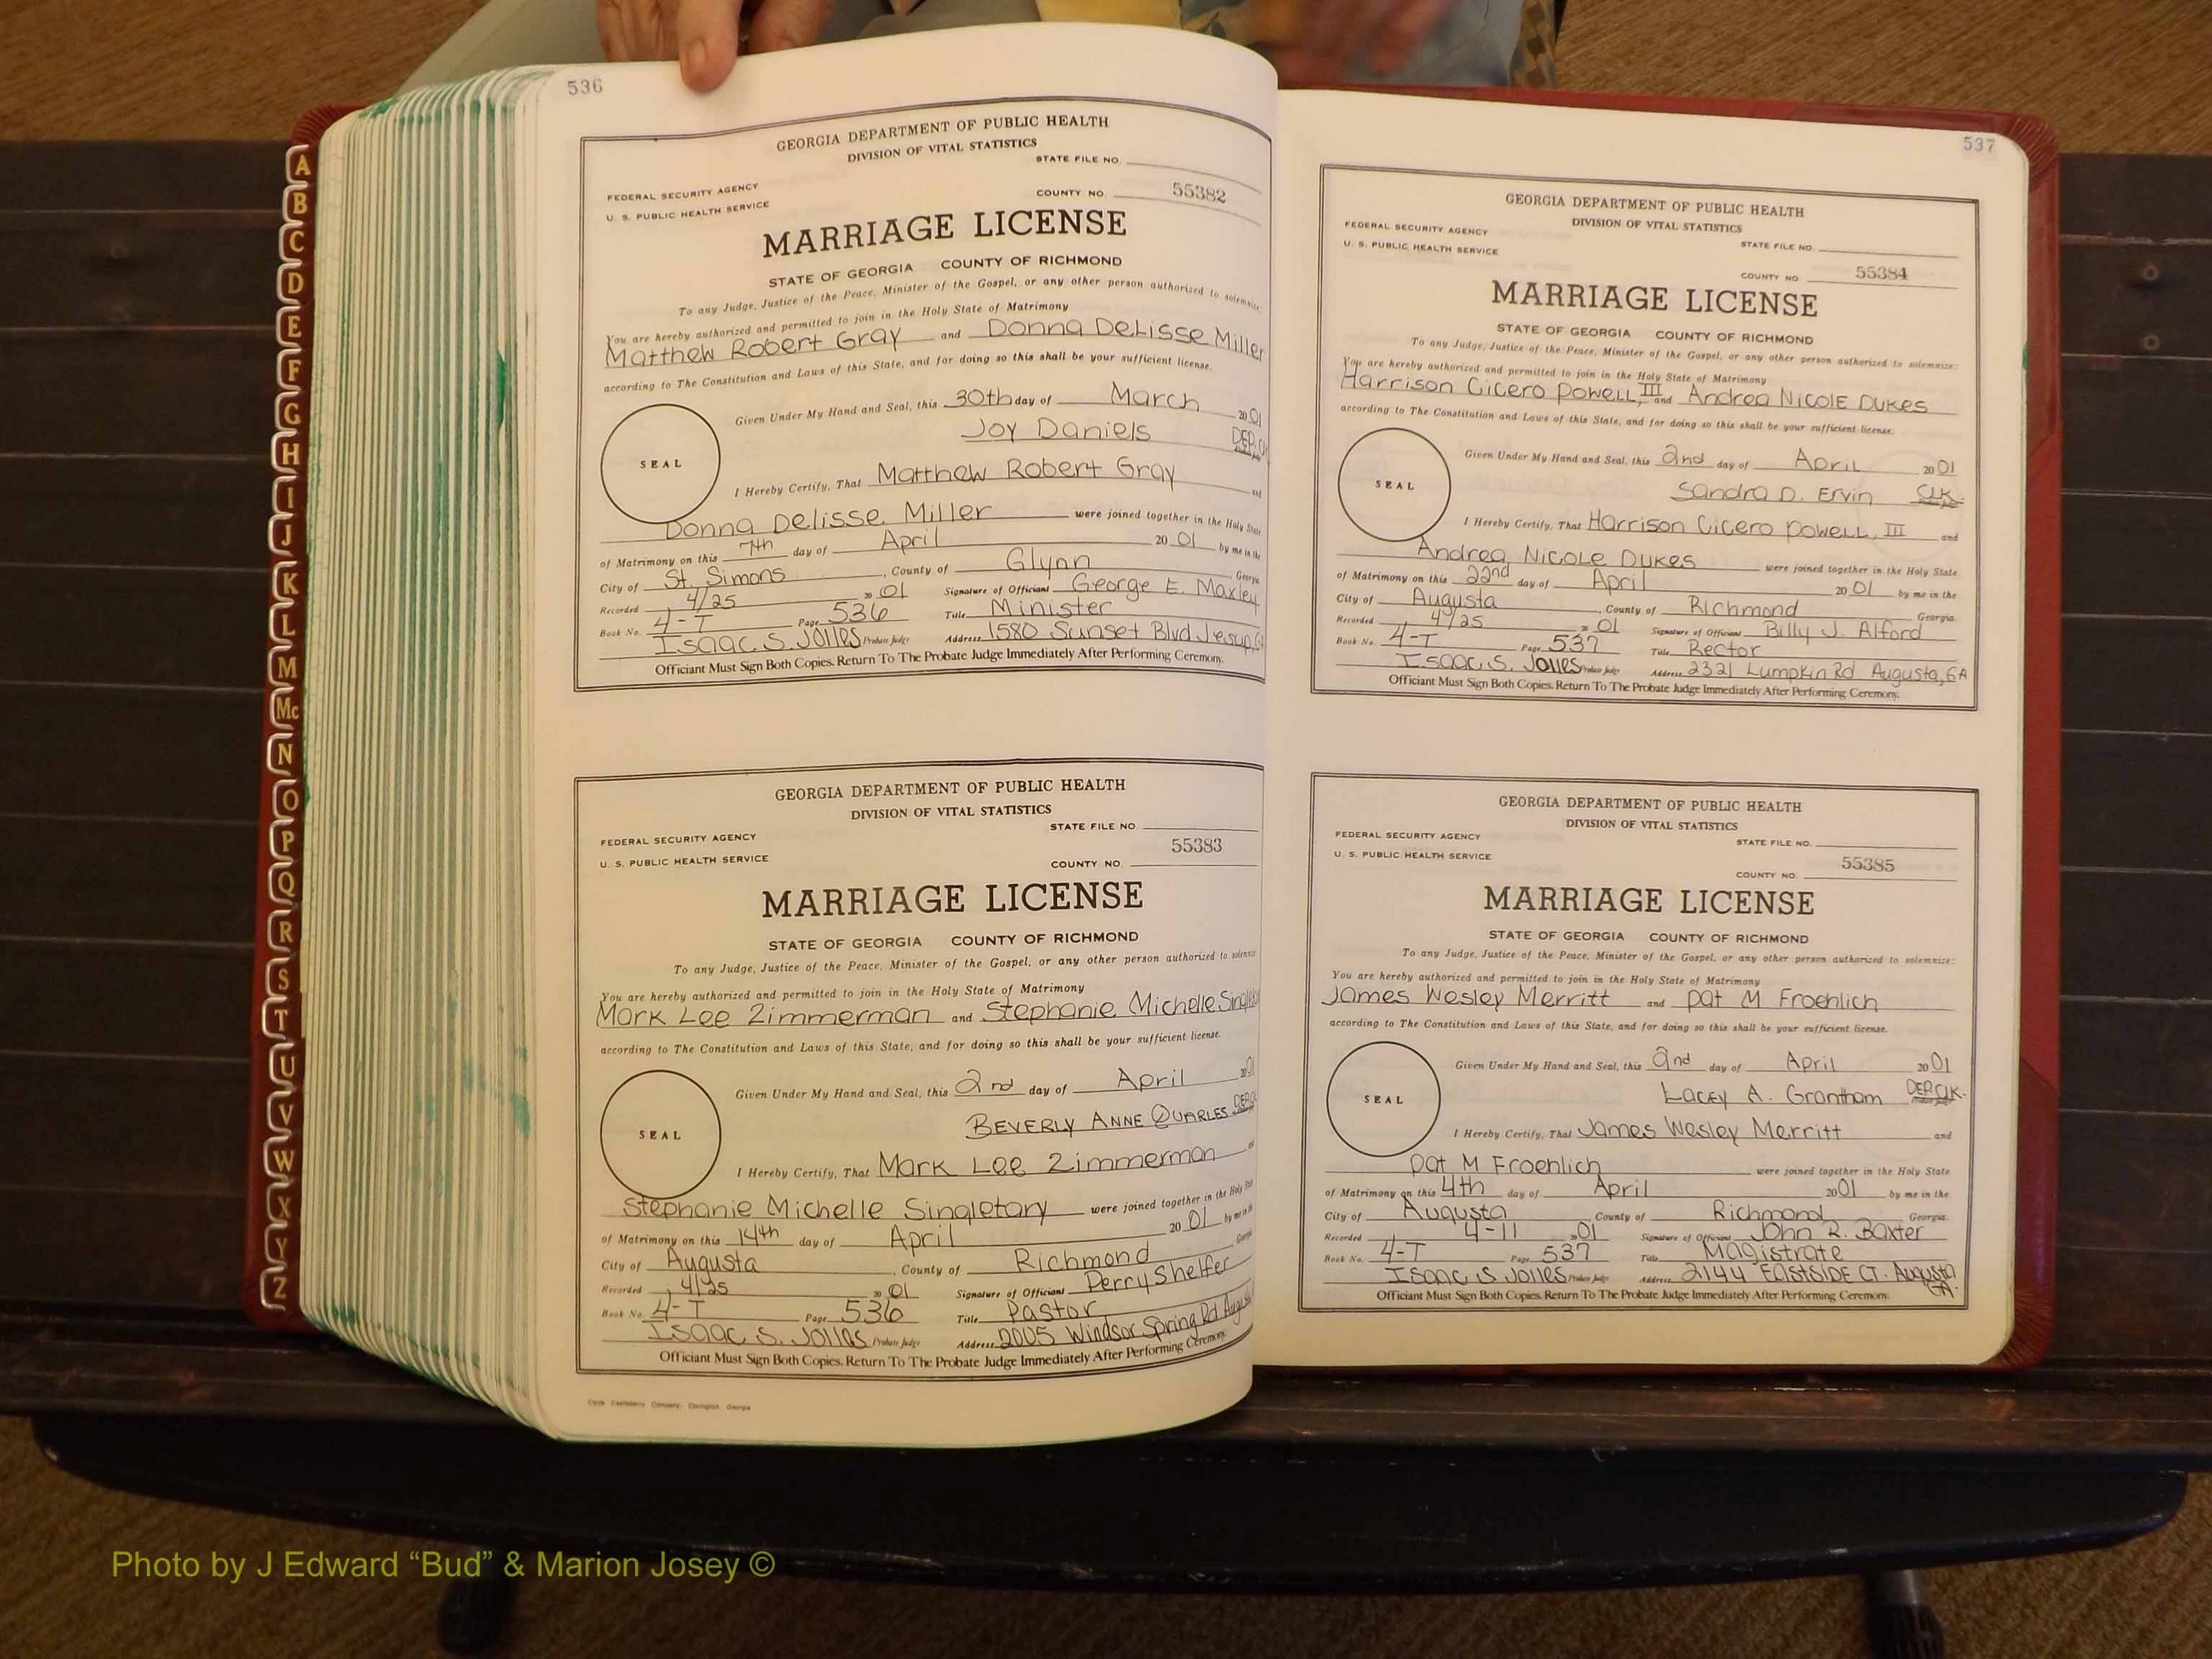 A
B
C
D
E
F
G
H
I
J
K
L
M
Mc
N
O
P
Q
R
S
T
U
V
W
X
Y
Z
536
GEORGIA DEPARTMENT OF PUBLIC HEALTH
DIVISION OF VITAL STATISTICS
STATE FILE NO.
FEDERAL SECURITY AGENCY
COUNTY NO. 55382
U. S. PUBLIC HEALTH SERVICE
MARRIAGE LICENSE
STATE OF GEORGIA COUNTY OF RICHMOND
To any Judge, Justice of the Peace, Minister of the Gospel, or any other person authorized to solemnize:
You are hereby authorized and permitted to join in the Holy State of Matrimony
Matthew Robert Gray and Donna DeLisse Miller
according to The Constitution and Laws of this State, and for doing so this shall be your sufficient license.
Given Under My Hand and Seal, this 30th day of March 2001
Joy Daniels DEP.
SEAL
I Hereby Certify, That Matthew Robert Gray and
Donna Delisse Miller were joined together in the Holy State
of Matrimony on this 7th day of April 2001 by me in the
City of St. Simons, County of Glynn
Recorded 4/25 2001 Signature of Officiant George E. Maxley
Book No. 4-T Page 536 Title Minister
Isaac S. Jolles Probate Judge Address 1580 Sunset Blvd Jesup, GA
Officiant Must Sign Both Copies. Return To The Probate Judge Immediately After Performing Ceremony.
GEORGIA DEPARTMENT OF PUBLIC HEALTH
DIVISION OF VITAL STATISTICS
STATE FILE NO.
FEDERAL SECURITY AGENCY
55383
U. S. PUBLIC HEALTH SERVICE COUNTY NO.
MARRIAGE LICENSE
STATE OF GEORGIA COUNTY OF RICHMOND
To any Judge, Justice of the Peace, Minister of the Gospel, or any other person authorized to
You are hereby authorized and permitted to join in the Holy State of Matrimony
Mark Lee Zimmerman and Stephanie Michelle
according to The Constitution and Laws of this State, and for doing so this shall be your sufficient license.
Given Under My Hand and Seal, this 2nd day of April 2001
BEVERLY ANNE QUARLES
SEAL
I Hereby Certify, That Mark Lee Zimmerman and
Stephanie Michelle Singletary were joined together in the Holy State
of Matrimony on this 14th day of April 2001 by me in the
City of Augusta, County of Richmond Georgia
Recorded 4/25 2001 Signature of Officiant Perry Shelfer
Book No. 4-T Page 536 Title Pastor
Isaac S. Jolles Probate Judge Address 2005 Windsor Spring Rd Augusta
Officiant Must Sign Both Copies. Return To The Probate Judge Immediately After Performing Ceremony.
Company, Georgia
537
GEORGIA DEPARTMENT OF PUBLIC HEALTH
DIVISION OF VITAL STATISTICS
FEDERAL SECURITY AGENCY
STATE FILE NO.
U. S. PUBLIC HEALTH SERVICE
COUNTY NO. 55384
MARRIAGE LICENSE
STATE OF GEORGIA COUNTY OF RICHMOND
To any Judge, Justice of the Peace, Minister of the Gospel, or any other person authorized to solemnize:
You are hereby authorized and permitted to join in the Holy State of Matrimony
Harrison Cicero Powell, III and Andrea Nicole Dukes
according to The Constitution and Laws of this State, and for doing so this shall be your sufficient license.
Given Under My Hand and Seal, this 2nd day of April 2001
Sandra D. Ervin CLK.
SEAL
I Hereby Certify, That Harrison Cicero Powell, III and
Andrea Nicole Dukes were joined together in the Holy State
of Matrimony on this 22nd day of April 2001 by me in the
City of Augusta, County of Richmond Georgia.
Recorded 4/25 2001 Signature of Officiant Billy J. Alford
Book No. 4-T Page 537 Title Rector
Isaac S. Jolles Probate Judge Address 2321 Lumpkin Rd Augusta, GA
Officiant Must Sign Both Copies. Return To The Probate Judge Immediately After Performing Ceremony.
GEORGIA DEPARTMENT OF PUBLIC HEALTH
DIVISION OF VITAL STATISTICS
FEDERAL SECURITY AGENCY
STATE FILE NO.
U. S. PUBLIC HEALTH SERVICE
COUNTY NO. 55385
MARRIAGE LICENSE
STATE OF GEORGIA COUNTY OF RICHMOND
To any Judge, Justice of the Peace, Minister of the Gospel, or any other person authorized to solemnize:
You are hereby authorized and permitted to join in the Holy State of Matrimony
James Wesley Merritt and Pat M Froehlich
according to The Constitution and Laws of this State, and for doing so this shall be your sufficient license.
Given Under My Hand and Seal, this 2nd day of April 2001
Lacey A. Grantham DEP.CLK.
SEAL
I Hereby Certify, That James Wesley Merritt and
Pat M Froehlich were joined together in the Holy State
of Matrimony on this 4th day of April 2001 by me in the
City of Augusta, County of Richmond Georgia.
Recorded 4-11 2001 Signature of Officiant John R. Baxter
Book No. 4-T Page 537 Title Magistrate
Isaac S Jolles Probate Judge Address 2144 EASTSIDE CT. Augusta GA.
Officiant Must Sign Both Copies. Return To The Probate Judge Immediately After Performing Ceremony.
Photo by J Edward “Bud” & Marion Josey ©